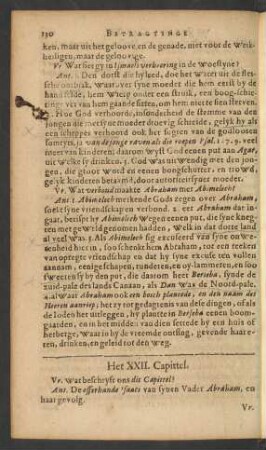 130 BETRACTINGE
ken, maar uit het geloove, en de genade, niet voor de Werk-
heiligen, maar de geloovige.
Vr. Wat segt gy
Ant. 1. Den dorst die hy leed, doe het Water uit de fles-
sche ontbrak, want
hand stelde, hem Wierp onder een struik, een boog-schie-
ting ver van hem gaande sitten, om hem niet te sien sterven.
2. Hoe God verhoorde, insonderheid de stemme van den
jongen die met syne moeder doerig schreide, gelijk hy als
een schepper verhoord ook het segsen van de godloosen
somtyts, ja van de jonge raven als die roepen Psal. 147. 9. veel
meer van kinderen; daarom Wyst God eenen put aan Agar,
uit Welke sy drinken. 3. God was uitwendig met den jon-
gen, die groot word en eenen boogschutter, en
gelijk kinderen betaamd, door autoriteit syner moeder.
Vr. Wat verbond maakte Abraham met Abimelech?
Ant. 1. Abimelech merkende Gods zegen over Abraham,
soekt syne vriendschap en verbond. 2. eer Abraham dat in-
gaat, berispt hy Abimelech Wegens eenen put, die syne kneg-
ten met geweld genomen hadden, Welk in dat dorre land
al veel Was. 3. Als Abimelech sig excuseerd van syne onwe-
tenheid hier in, soo schenkt hem Abraham, tot een teeken
van opregte vriendschap en dat hy excuse soude tellen
aannam, eenige schapen, runderen, en oy-lammeren, en soo
swetten sy by den put, die daarom heet Berseba, synde de
zuid-pale des lands Canaan, als Dan Was de Noord-pale.
4. alwaar Abraham ook een bosch plantede, en den naam des
Heeren aanriep; het zy tot gedagtenis van dese dingen, of als
de Joden het uitleggen, hy plantte in Berseba eenen boom-
gaard, en in het midden van dien settede hy een huis of
herberge, waar in hy de vreemde ontfing, gevende haar e-
ten, drinken, en geleid tot den weg.
Het XXII. Capittel.
Vr. Wat beschryft ons dit Capittel?
Ant. De offerhande Isaats van synen Vader Abraham, en
haar gevolg.
Vr.